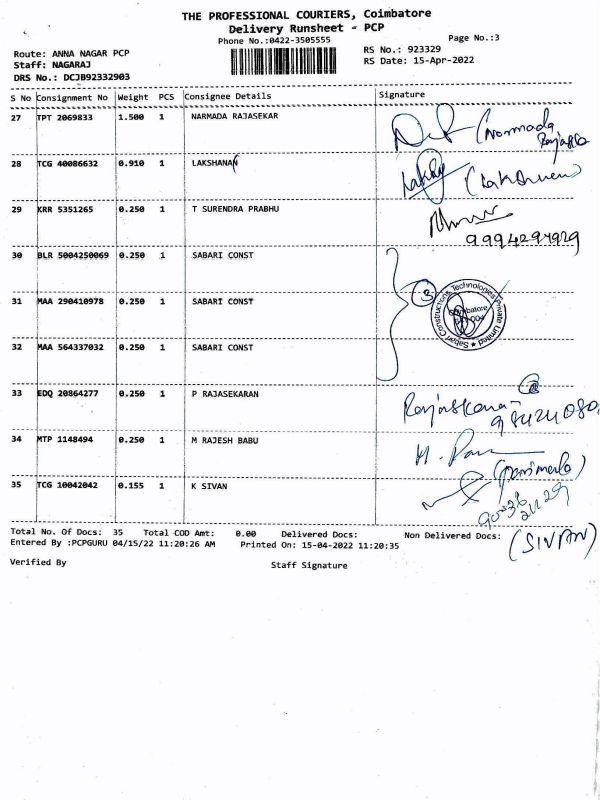 THE PROFESSIONAL COURIERS, Coimbatore
Delivery Runsheet - PCP
Phone No.:0422-3505555
Page No.:3
Route: ANNA NAGAR PCP
RS No.: 923329
Staff: NAGARAJ
RS Date: 15-Apr-2022
DRS No.: DCJB92332903
S No Consignment No Weight PCS Consignee Details Signature
27 TPT 2069833 1.500 1 NARMADA RAJASEKAR
(Narmada
28 TCG 40086632 0.910 1 LAKSHANAN
29 KRR 5351265 0.250 1 T SURENDRA PRABHU
9994294929
30 BLR 5004250069 0.250 1 SABARI CONST
31 MAA 290410978 0.250 1 SABARI CONST
3
Sabari Constructions Technologies Private Limited
Coimbatore
32 MAA 564337032 0.250 1 SABARI CONST
33 EDQ 20864277 0.250 1 P RAJASEKARAN
34 MTP 1148494 0.250 1 M RAJESH BABU
35 TCG 10042042 0.155 1 K SIVAN
Total No. Of Docs: 35 Total COD Amt: 0.00 Delivered Docs: Non Delivered Docs:
(SIVAN)
Entered By :PCPGURU 04/15/22 11:20:26 AM Printed On: 15-04-2022 11:20:35
Verified By Staff Signature